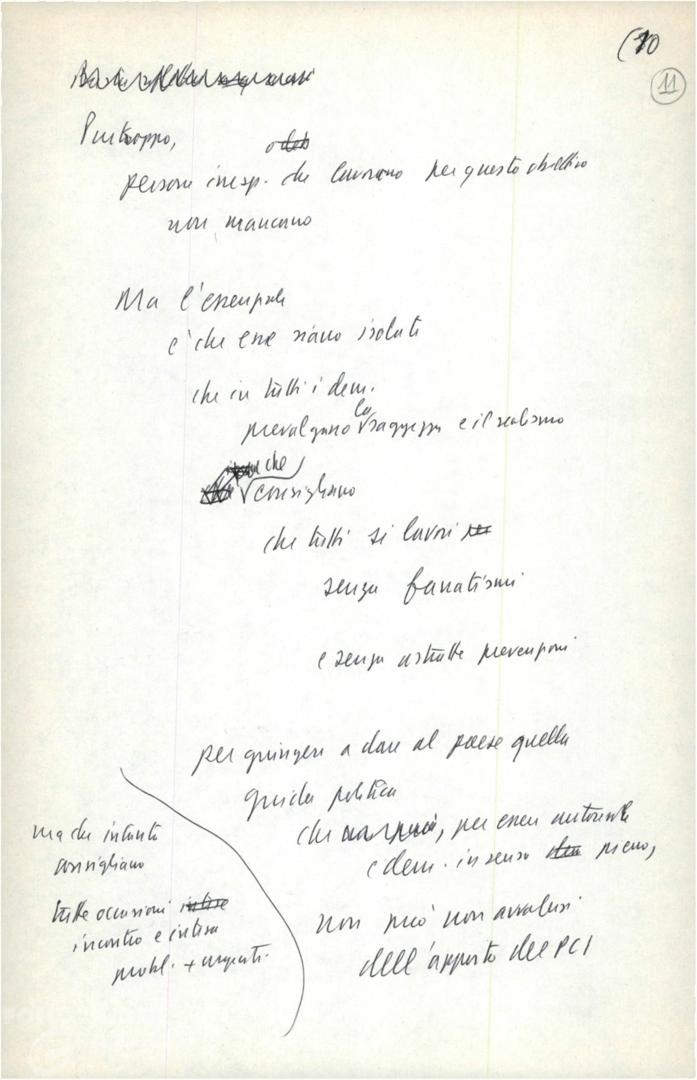 (10
11
Purtroppo,
persone inesp. che lavorano per questo obiettivo
non mancano
Ma l'essenziale
è che esse siano isolate
che in tutti i dem.
prevalgano la saggezza e il realismo
che
consigliano
che tutti si lavori
senza fanatismi
e senza astratte prevenzioni
per giungere a dare al paese quella
guida politica
che, per essere autorevole
e dem. in senso pieno,
non può non avvalersi
dell'apporto del PCI
ma che intanto
consigliano
tutte occasioni
incontro e intesa
probl. + urgenti.